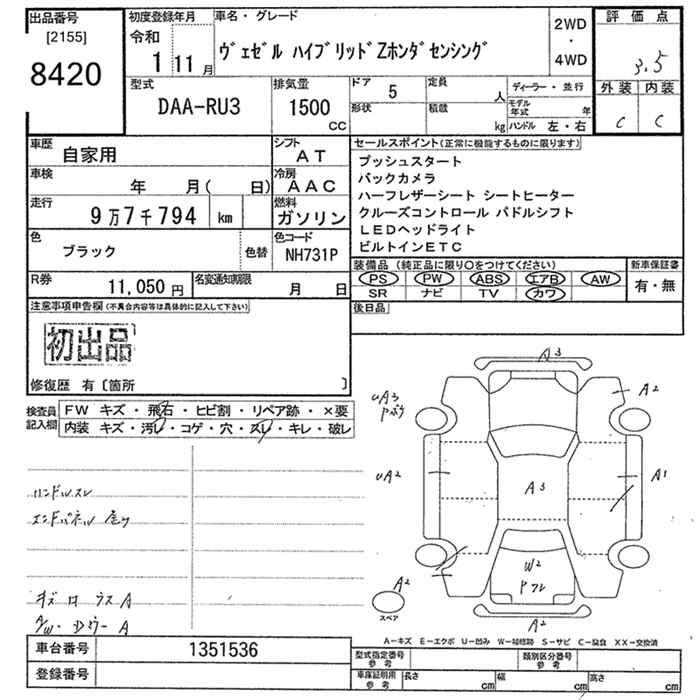 出品番号
[2155]
8420
初度登録年月
令和
1 11月
車名・グレード
ヴェゼル ハイブリッドZホンダセンシング
2WD
・
4WD
評価点
3.5
外装 内装
C C
型式
DAA-RU3
排気量
1500
CC
ドア 5
形状
定員 人
積載 kg
ディーラー・並行
モデル年式 年
ハンドル 左・右
車歴 自家用
シフト AT
車検 年 月( 日)
冷房 AAC
走行 9万7千794 km
燃料 ガソリン
色 ブラック 色替
色コード NH731P
R券 11,050円
名変通知期限 月 日
セールスポイント(正常に機能するものに限ります)
プッシュスタート
バックカメラ
ハーフレザーシート シートヒーター
クルーズコントロール パドルシフト
LEDヘッドライト
ビルトインETC
装備品 (純正品に限り○をつけてください)
PS PW ABS エアB AW
SR ナビ TV カワ
新車保証書
有・無
後日品
注意事項申告欄(不具合内容等は具体的に記入して下さい)
初出品
修復歴 有〔箇所 〕
検査員記入欄
FW キズ・飛石・ヒビ割・リペア跡・×要
内装 キズ・汚レ・コゲ・穴・スレ・キレ・破レ
ハンドルスレ
エンドパネル
A3
A2
UA3
UA2
A1
A3
W2
A2
スペア
A2
A-キズ E-エクボ U-凹み W-補修跡 S-サビ C-腐食 XX-交換済
車台番号 1351536
登録番号
型式指定番号 参考
類別区分番号 参考
車庫証明用 参考
長さ cm 幅 cm 高さ cm